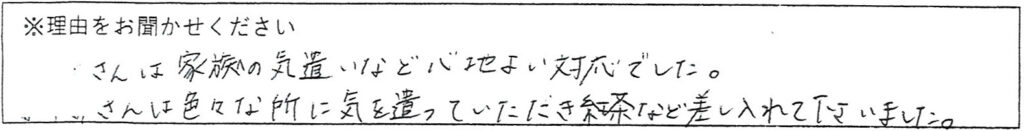 ※理由をお聞かせください
さんは家族の気遣いなど心地よい対応でした。
さんは色々な所に気を遣っていただき紅茶など差し入れて下さいました。